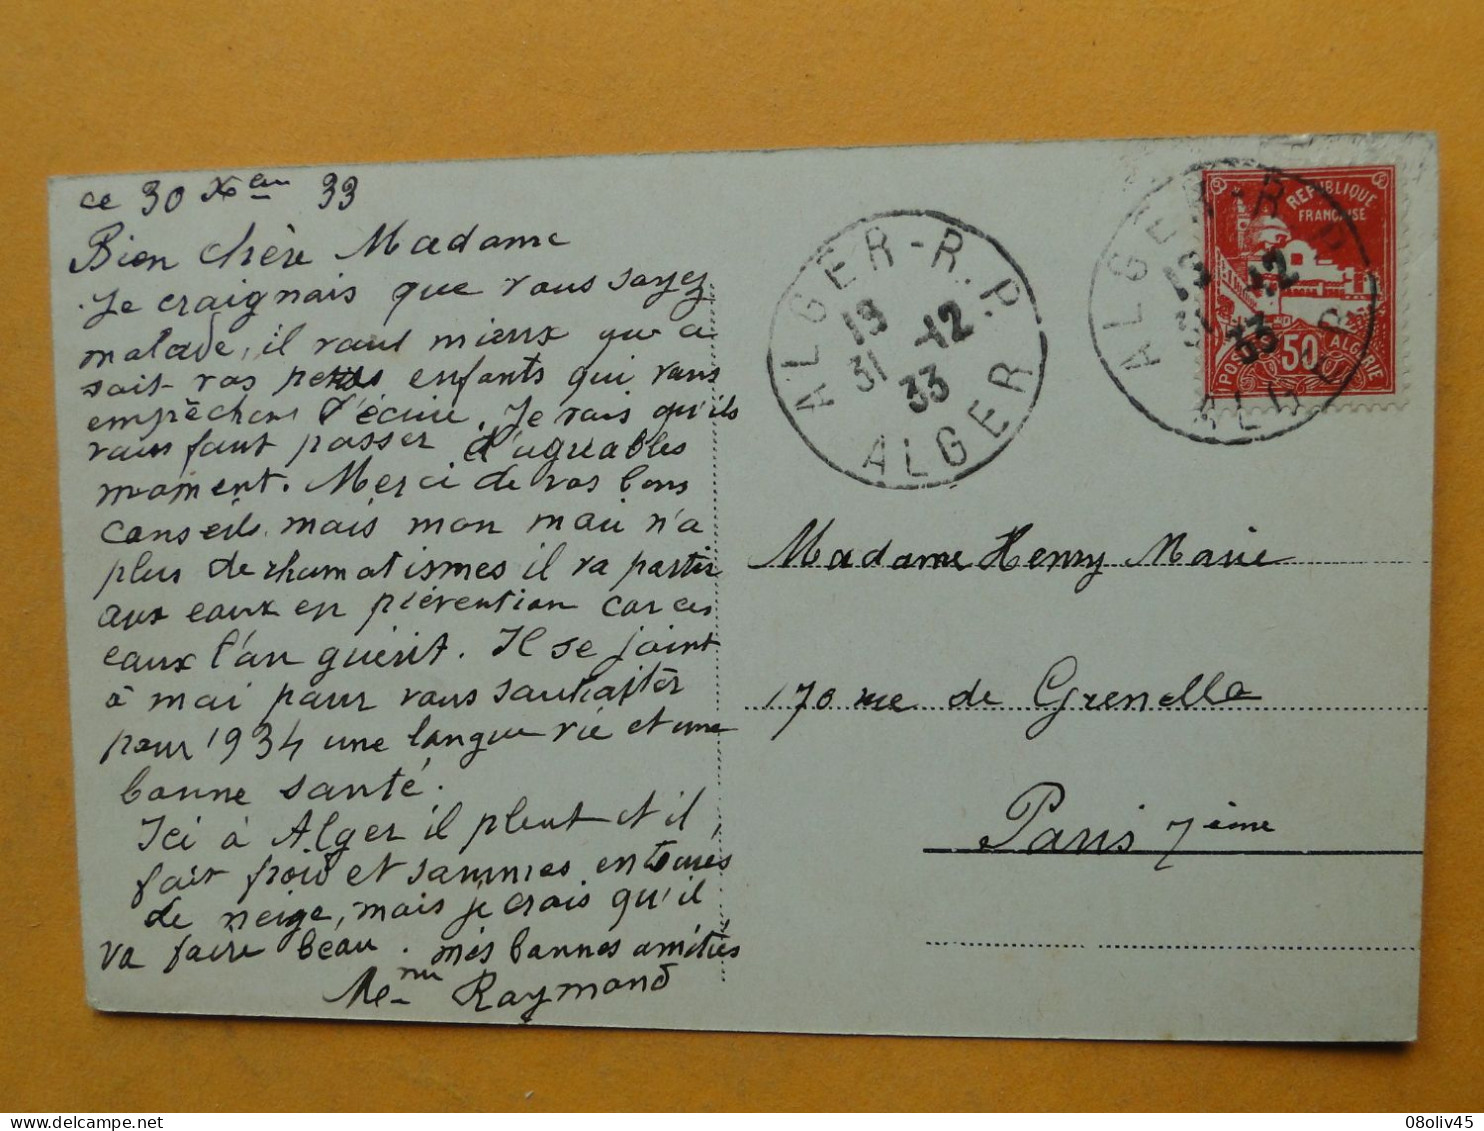 ce 30 Xen 33
Bien chère Madame
Je craignais que vous soyez
malade, il vaut mieux que ce
soit vos petits enfants qui vous
empêchent d'écrire. Je vois qu'ils
vous font passer d'agréables
moment. Merci de vos bons
conseils mais mon mari n'a
plus de rhumatismes il va partir
aux eaux en prévention car ces
eaux l'on guérit. Il se joint
à moi pour vous souhaiter
pour 1934 une longue vie et une
bonne santé.
Ici à Alger il pleut et il
fait froid et sommes entourés
de neige, mais je crois qu'il
va faire beau. mes bonnes amitiés
Raymond
ALGER-R.P
19
31 -12
33
ALGER
ALGER-R.P
19
31 -12
33
ALGER
REPUBLIQUE
FRANÇAISE
POSTES 50 ALGERIE
Madame Henry Marie
170 rue de Grenelle
Paris 7ème
08oliv45